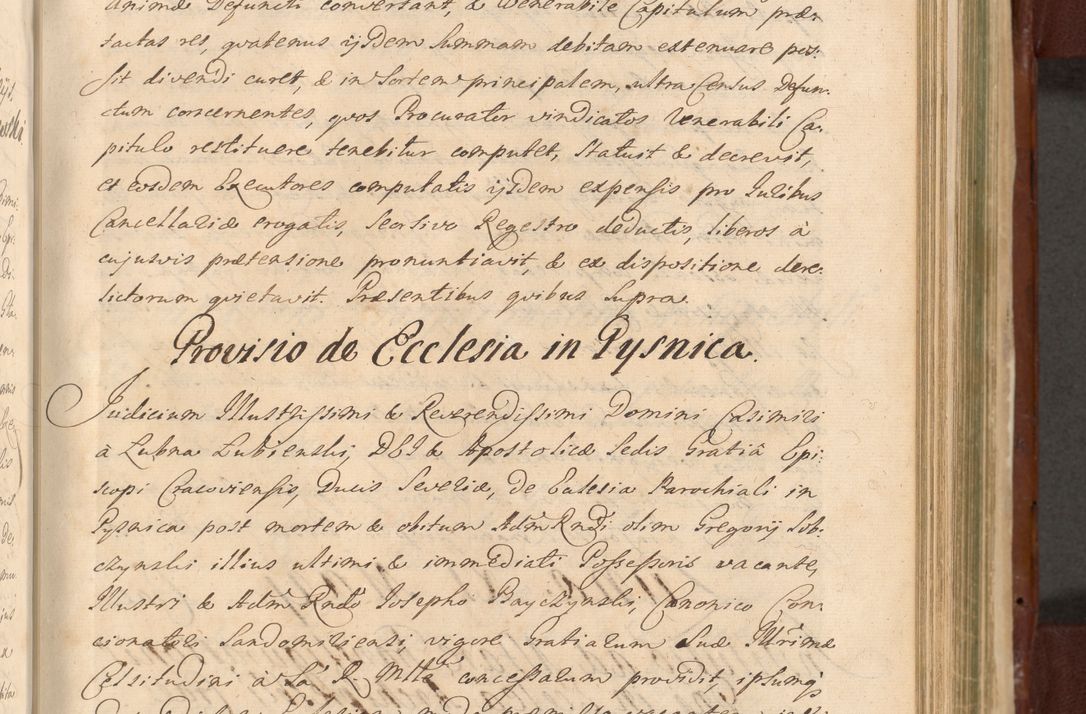 Animæ Defuncti convertant, & Venerabile Capitulum præn
tactas res, qvatenus ijsdem summam debitam extenuare pos:
sit divendi curet, & in sortem principalem, ultra Census Defun:
ctum concernentes, qvos Procurator vindicatos Venerabili Ca:
pitulo restituere tenebitur computet, Statuit & decrevit,
et eosdem Executores computatis ijsdem expensis pro Juribus
Cancellariæ erogatis, seorsivo Regestro deductis, liberos à
cujusvis prætensione pronuntiavit, & ex dispositione dere:
lictorum qvietavit. Præsentibus qvibus supra.
Provisio de Ecclesia in Pysnica.
Judicium Illustrissimi & Reverendissimi Domini Casimiri
à Łubna Łubienski, DEI & Apostolicæ Sedis Gratiâ Epi:
scopi Cracoviensis, Ducis Severiæ, de Eclesia Parochiali in
Pysnica post mortem & obitum Adm Rndi olim Gregorij Sob:
czynski illius ultimi & immediati Possessoris vacante,
Illustri & Adm Rndo Josepho Bayczynski, Canonico Con
cionatori Sandomiriensi, vigore Gratiarum Suæ Illrimæ
Celsitudini a Sa R. Mtte concessarum providit, ipsumq;